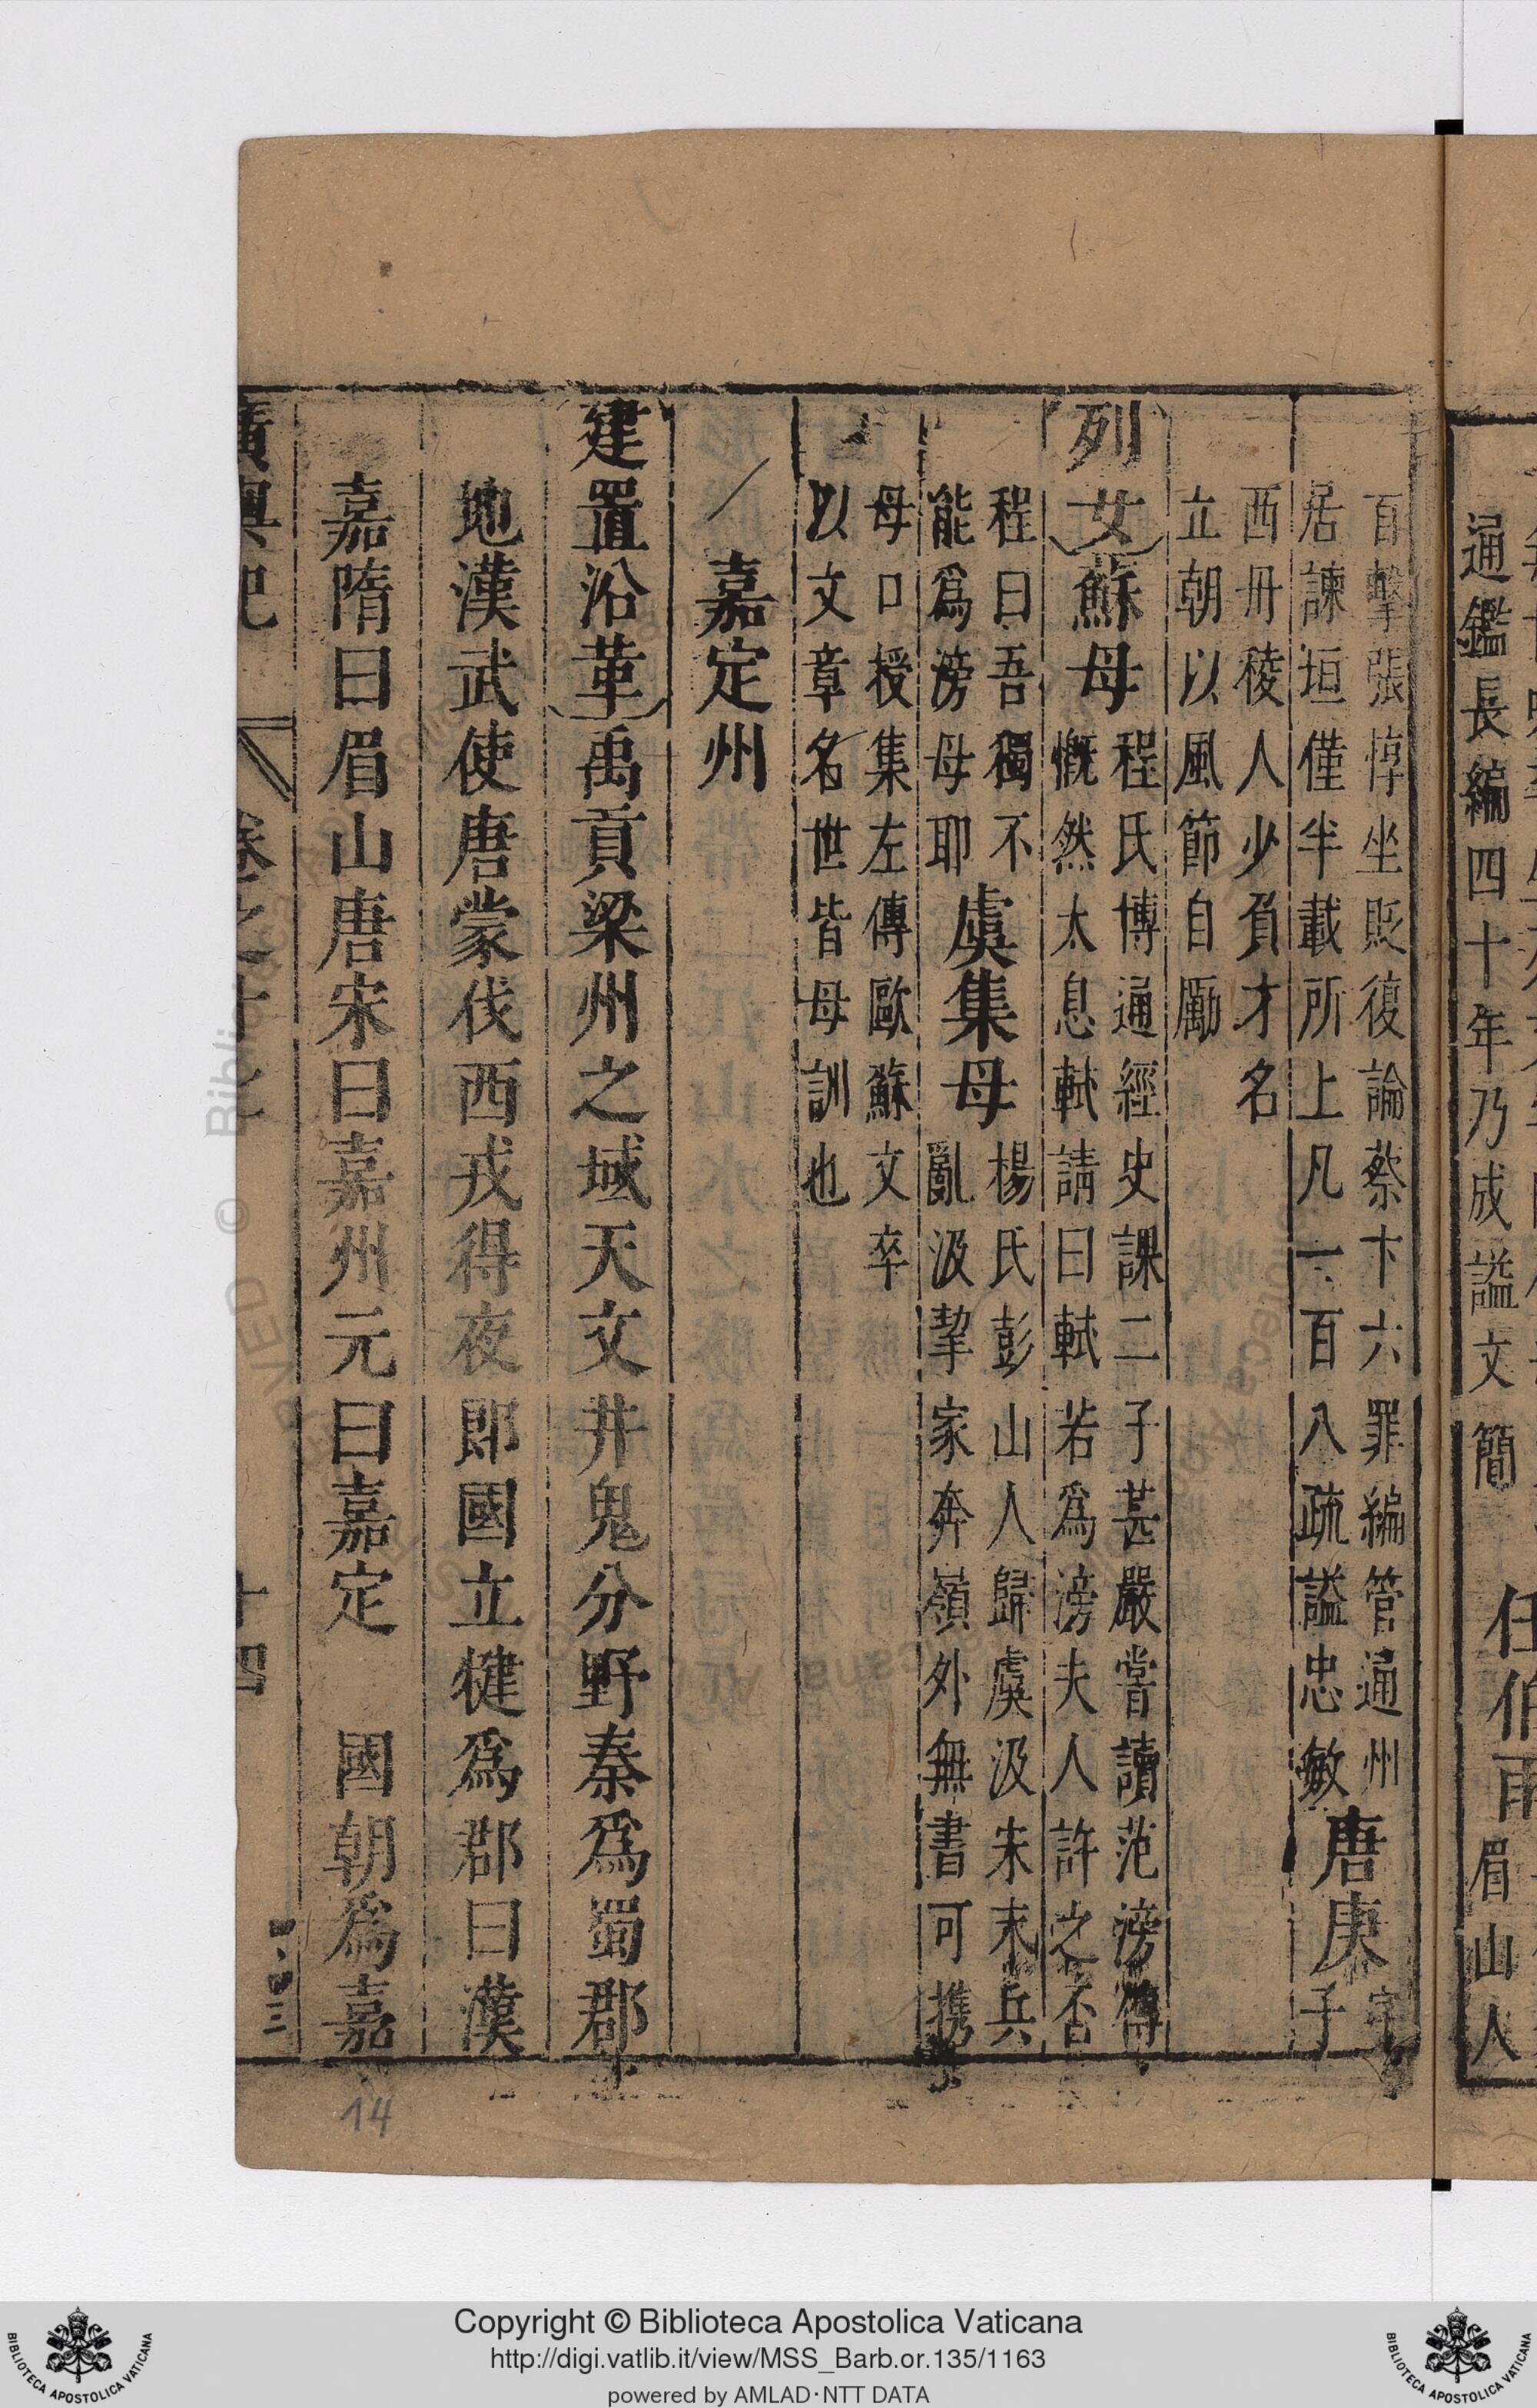 通鑑長編四十年乃成謚文簡
任伯雨
眉山人
百擊張惇坐貶復論蔡卞六罪編管通州
居諫垣僅半載所上凡一百八疏謚忠敏
唐庚
字子
西丹稜人少負才名
立朝以風節自勵
列女
蘇母
程氏博通經史課二子甚嚴嘗讀范滂傳
慨然太息軾請曰軾若爲滂夫人許之否
程曰吾獨不
能爲滂母耶
虞集母
楊氏彭山人歸虞汲宋末兵
亂汲挈家奔嶺外無書可携
母口授集左傳歐蘇文卒
以文章名世皆母訓也
嘉定州
建置沿革
禹貢梁州之域天文井鬼分野秦爲蜀郡
地漢武使唐蒙伐西戎得夜郎國立犍爲郡曰漢
嘉隋曰眉山唐宋曰嘉州元曰嘉定 國朝爲嘉
廣輿記
卷之十七
十四
14
Copyright © Biblioteca Apostolica Vaticana
http://digi.vatlib.it/view/MSS_Barb.or.135/1163
powered by AMLAD·NTT DATA
BIBLIOTECA APOSTOLICA VATICANA
BIBLIOTECA APOSTOLICA VATICANA